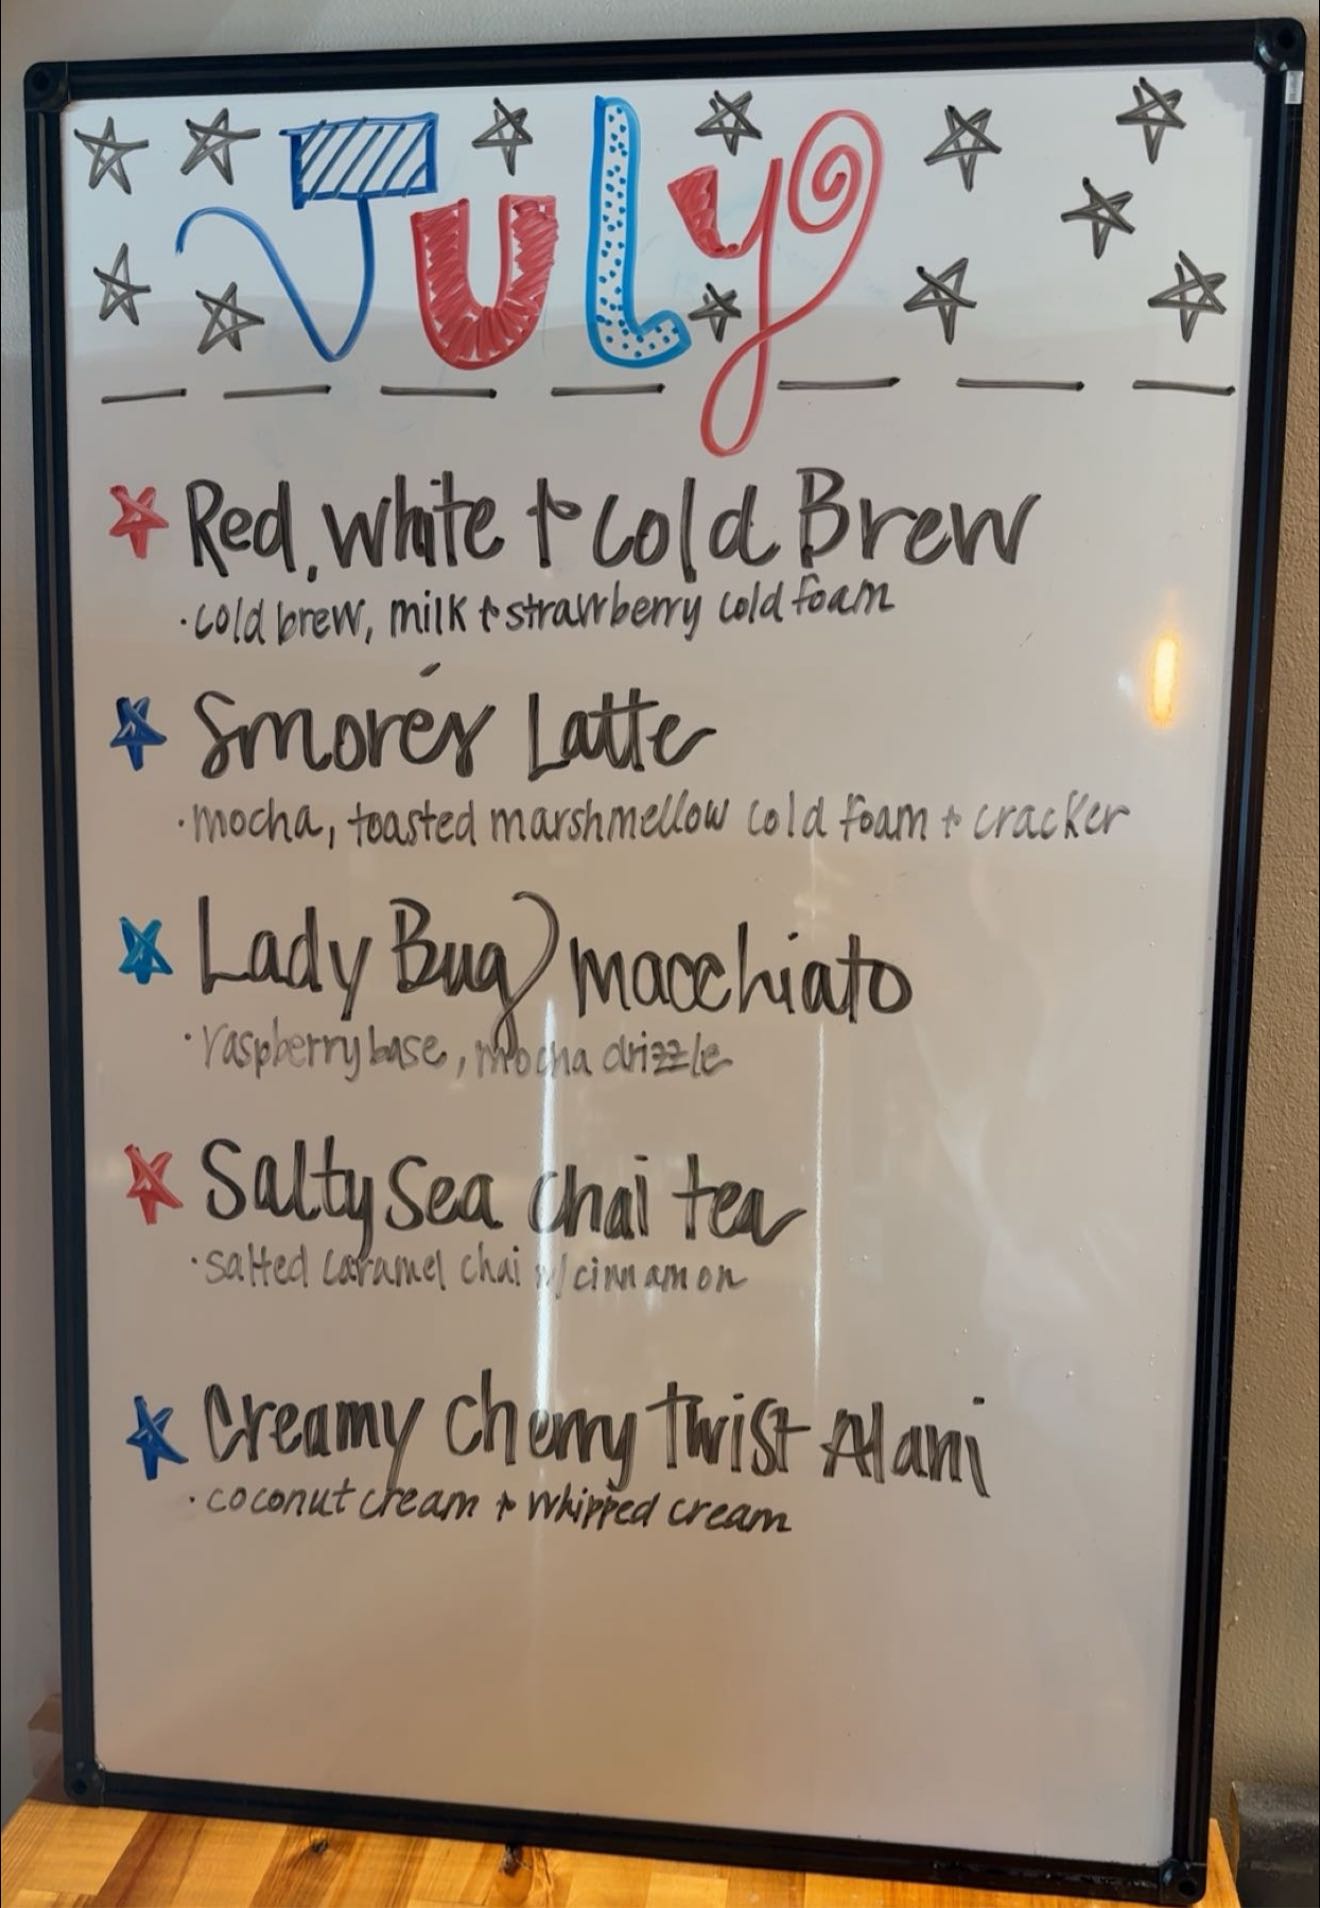 July
Red, white + cold Brew
· cold brew, milk + strawberry cold foam
Smore's Latte
· mocha, toasted marshmellow cold foam + cracker
Lady Bug macchiato
· raspberry base, mocha drizzle
Salty Sea chai tea
· salted caramel chai w/ cinnamon
Creamy Cherry Twist Alani
· coconut cream + whipped cream